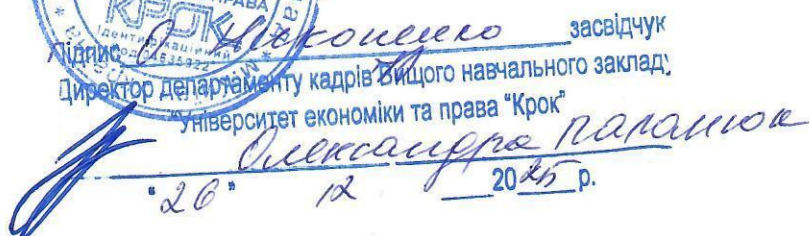 ПРАВА
КРОК
Ідентифікаційний
Підпис О. Никоненко засвідчук
Директор департаменту кадрів Вищого навчального заклад;
"Університет економіки та права "Крок"
Олександра Паланюк
"26" 12 2025 р.